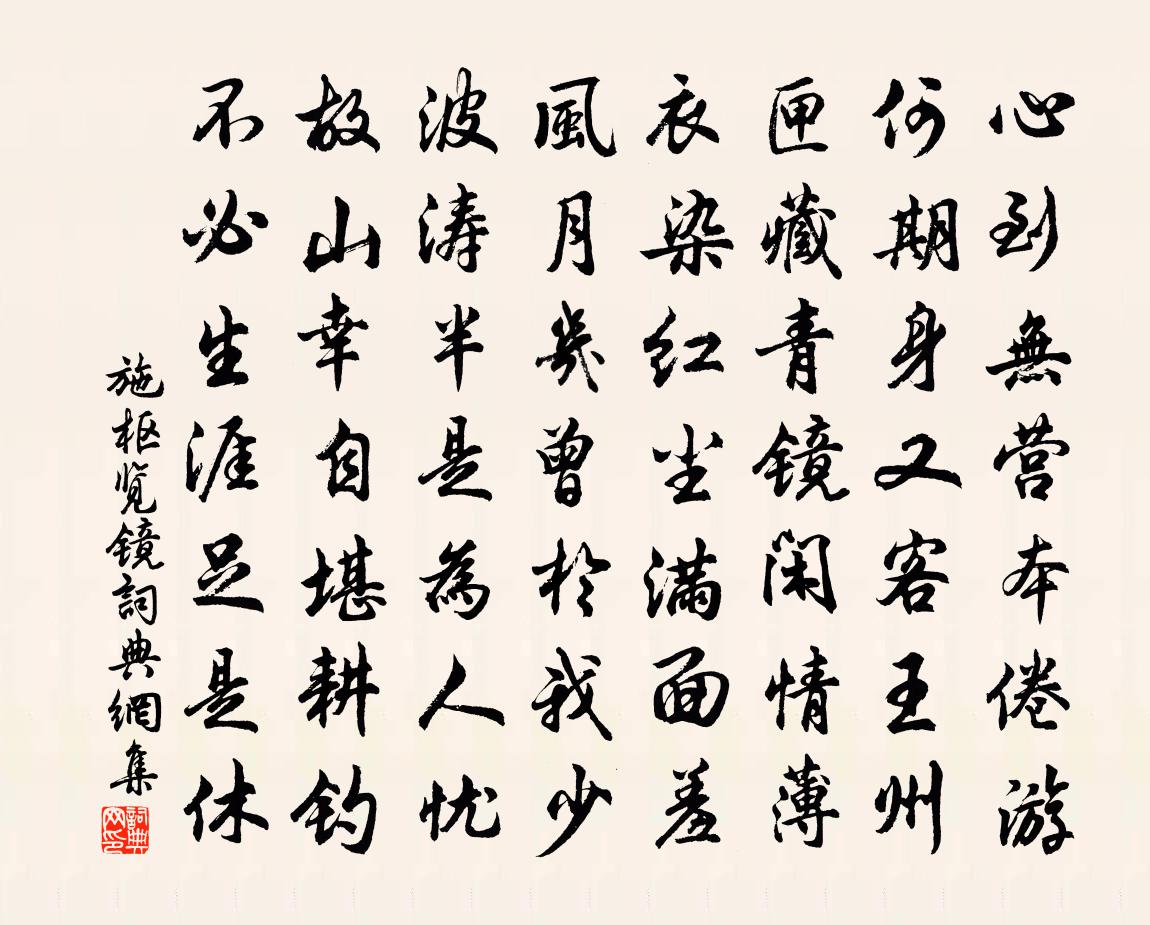 心到無营本倦游
何期身又客王州
匣藏青镜闲情薄
衣染红尘满面羞
風月幾曾於我少
波涛半是為人忧
故山幸自堪耕钓
不必生涯足是休
施枢览镜詞典網集
詞典网印